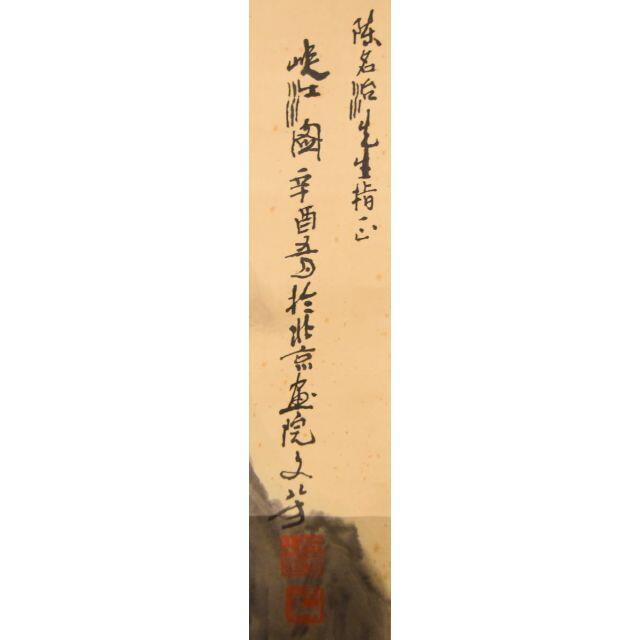 陈名治先生指正
峡江图辛酉五月於北京画院文芳